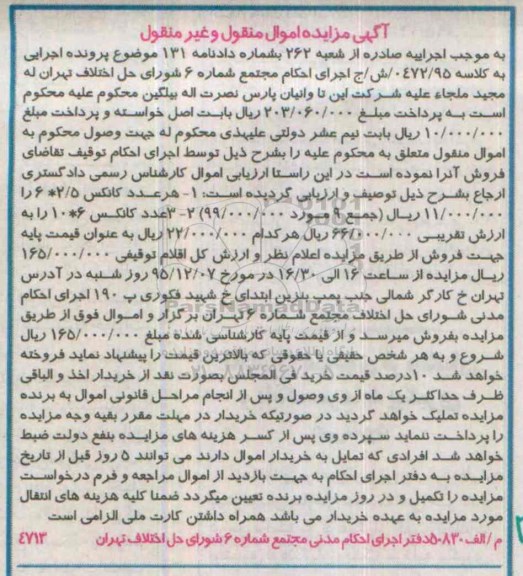 آگهی مزایده اموال منقول و غیر منقول
به موجب اجراییه صادره از شعبه ۲۶۲ بشماره دادنامه ۱۳۱ موضوع پرونده اجرایی
به کلاسه ۰۴۷۲/۹۵/ش/ج اجرای احکام مجتمع شماره ۶ شورای حل اختلاف تهران له
مجید ملجاء علیه شرکت این تا وانیان پارس نصرت اله بیلگین محکوم علیه محکوم
است به پرداخت مبلغ ۲۰۳/۰۶۰/۰۰۰ ریال بابت اصل خواسته و پرداخت مبلغ
۱۰/۰۰۰/۰۰۰ ریال بابت نیم عشر دولتی علیهذی محکوم له جهت وصول محکوم به
اموال منقول متعلق به محکوم علیه را بشرح ذیل توسط اجرای احکام توقیف تقاضای
فروش آنرا نموده است در این راستا ارزیابی اموال کارشناس رسمی دادگستری
ارجاع بشرح ذیل توصیف و ارزیابی گردیده است: ۱- هر عدد کانکس ۲/۵*۶ را
۱۱/۰۰۰/۰۰۰ ریال (جمیع ۹ مورد ۹۹/۰۰۰/۰۰۰) ۲- ۳عدد کانکس ۶*۱۰ را به
ارزش تقریبی ۶۶/۰۰۰/۰۰۰ ریال هر کدام ۲۲/۰۰۰/۰۰۰ ریال به عنوان قیمت پایه
جهت فروش از طریق مزایده اعلام نظر و ارزش کل اقلام توقیفی ۱۶۵/۰۰۰/۰۰۰
ریال مزایده از ساعت ۱۶ الی ۱۶/۳۰ در مورخ ۹۵/۱۲/۰۷ روز شنبه در آدرس
تهران خ کارگر شمالی جنب پمپ بنزین ابتدای خ شهید فکوری پ ۱۹۰ اجرای احکام
مدنی شورای حل اختلاف مجتمع شماره ۶ تهران برگزار و اموال فوق از طریق
مزایده بفروش میرسد و از قیمت پایه کارشناسی شده مبلغ ۱۶۵/۰۰۰/۰۰۰ ریال
شروع و به هر شخص حقیقی یا حقوقی که بالاترین قیمت را پیشنهاد نماید فروخته
خواهد شد ۱۰درصد قیمت خرید فی المجلس بصورت نقد از خریدار اخذ و الباقی
ظرف حداکثر یک ماه از وی وصول و پس از انجام مراحل قانونی اموال به برنده
مزایده تملیک خواهد گردید در صورتیکه خریدار در مهلت مقرر بقیه وجه مزایده
را پرداخت ننماید سپرده وی پس از کسر هزینه های مزایده بنفع دولت ضبط
خواهد شد افرادی که تمایل به خریدار اموال دارند می توانند ۵ روز قبل از تاریخ
مزایده به دفتر اجرای احکام به جهت بازدید از اموال مراجعه و فرم درخواست
مزایده را تکمیل و در روز مزایده برنده تعیین میگردد ضمنا کلیه هزینه های انتقال
مورد مزایده به عهده خریدار می باشد همراه داشتن کارت ملی الزامی است
م/الف ۵۰۸۳۰ دفتر اجرای احکام مدنی مجتمع شماره ۶ شورای حل اختلاف تهران ۴۷۱۳